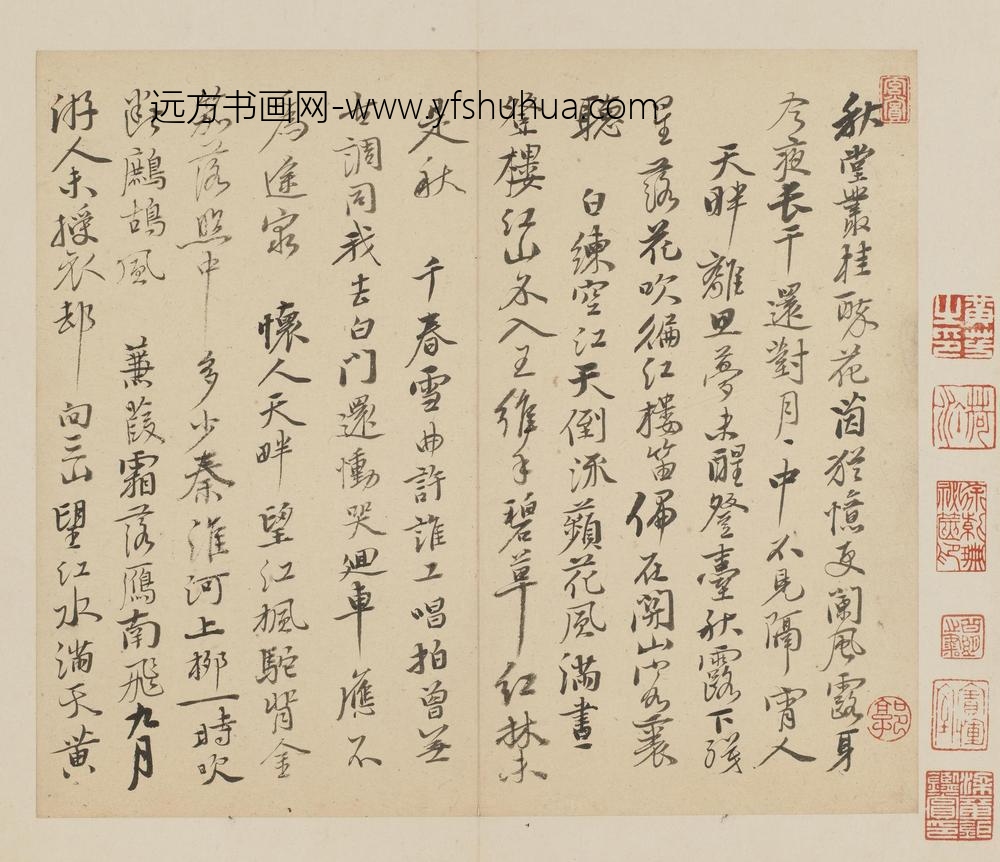 秋堂叢桂醉花茵猶憶更闌風露身
今夜長干還對月月中不見隔宵人
天畔離思夢未醒登臺秋露下殘
星落花吹徧江樓笛偏在關山
聽 白練空江天倒流蘋花風滿畫
登樓江山入王維手碧草紅林未
是秋 千春雪曲許誰工唱拍曾無
世調同我去白門還慟哭廻車應不
爲途窮 懷人天畔望江楓駝背金
落照中 多少秦淮河上柳一時吹
鷓鴣風 蒹葭霜落鴈南飛九月
游人未授衣却向三山望江水滿天黄
远方书画网-www.yfshuhua.com